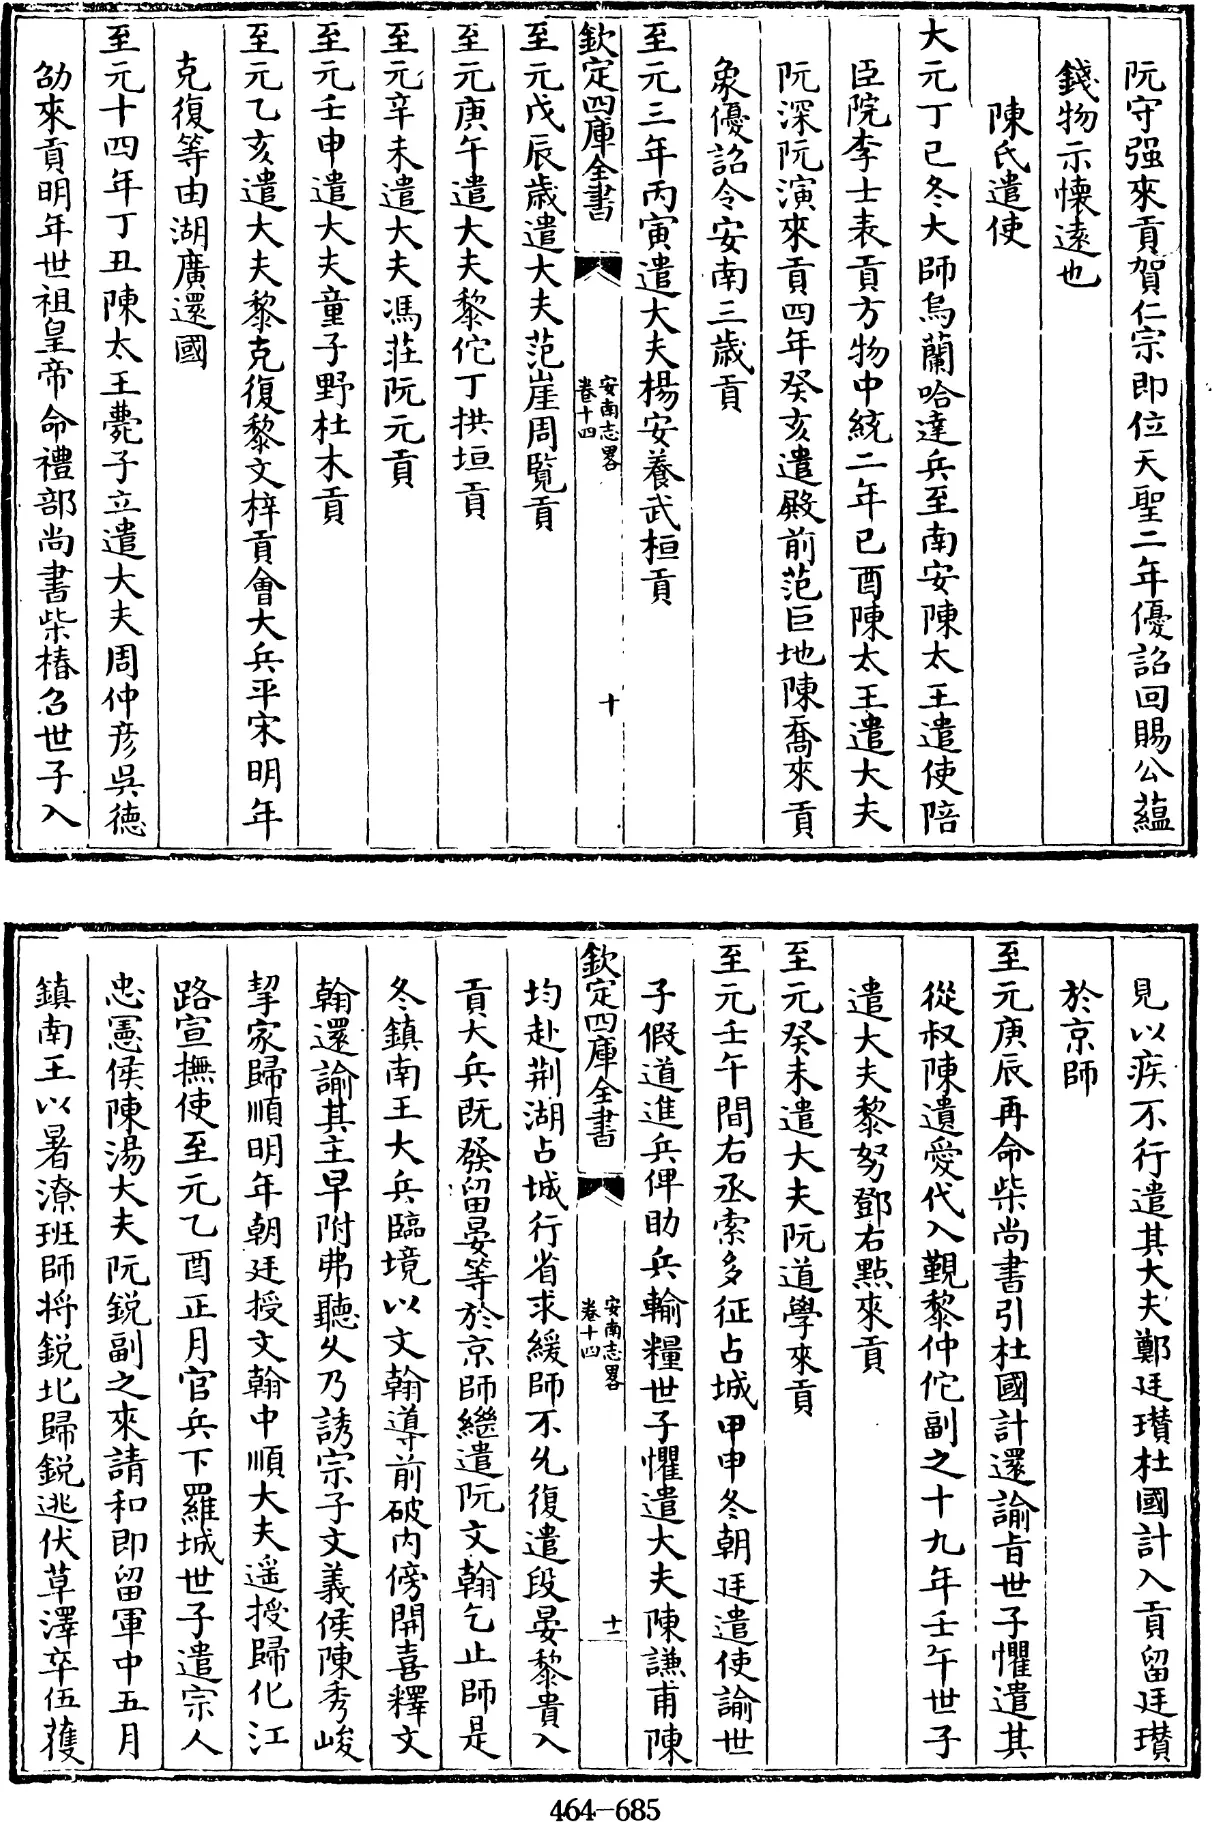 阮守强來貢賀仁宗即位天聖二年優詔回賜公蘊
錢物示懐遠也
陳氏遣使
大元丁已冬大師烏蘭哈達兵至南安陳太王遣使陪
臣院李士表貢方物中統二年已酉陳太王遣大夫
阮深阮演來貢四年癸亥遣殿前范巨地陳喬來貢
象優詔令安南三歲貢
至元三年丙寅遣大夫楊安養武桓貢
欽定四庫全書
安南志畧
卷十四
十
至元戊辰歲遣大夫范崖周覧貢
至元庚午遣大夫黎佗丁拱垣貢
至元辛未遣大夫馮莊阮元貢
至元壬申遣大夫童子野杜木貢
至元乙亥遣大夫黎克復黎文梓貢會大兵平宋明年
克復等由湖廣還國
至元十四年丁丑陳太王薨子立遣大夫周仲彦吳德
劭來貢明年世祖皇帝命禮部尚書柴椿召世子入
見以疾不行遣其大夫鄭廷瓚杜國計入貢留廷瓚
於京師
至元庚辰再命柴尚書引杜國計還諭旨世子懼遣其
從叔陳遺愛代入覲黎仲佗副之十九年壬午世子
遣大夫黎努鄧右點來貢
至元癸未遣大夫阮道學來貢
至元壬午間右丞索多征占城甲申冬朝廷遣使諭世
子假道進兵俾助兵輸糧世子懼遣大夫陳謙甫陳
欽定四庫全書
安南志畧
卷十四
十一
均赴荆湖占城行省求緩師不允復遣段晏黎貴入
貢大兵既發留晏等於京師繼遣阮文翰乞止師是
冬鎮南王大兵臨境以文翰導前破内傍開喜釋文
翰還諭其主早附弗聽乆乃誘宗子文義侯陳秀峻
挈家歸順明年朝廷授文翰中順大夫遥授歸化江
路宣撫使至元乙酉正月官兵下羅城世子遣宗人
忠憲侯陳湯大夫阮鋭副之來請和即留軍中五月
鎮南王以暑潦班師将鋭北歸鋭逃伏草澤卒伍獲
464-685